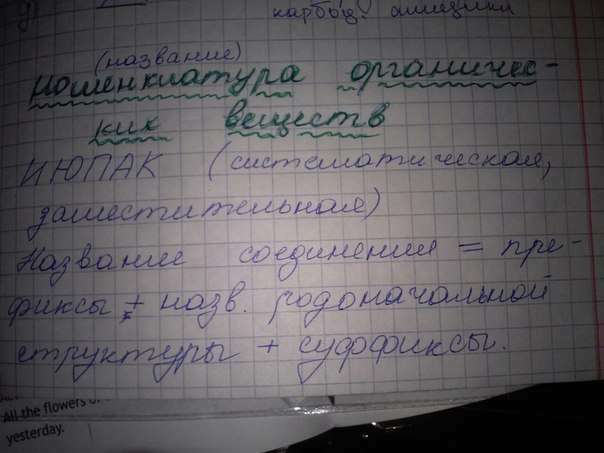 карбоц. амицины
(название)
номенклатура органичес-
ких веществ
ИЮПАК (систематическая,
заместительная)
Название соединения = пре-
фиксы + назв. родоначальной
структуры + суффиксы.
All the flowers
yesterday.